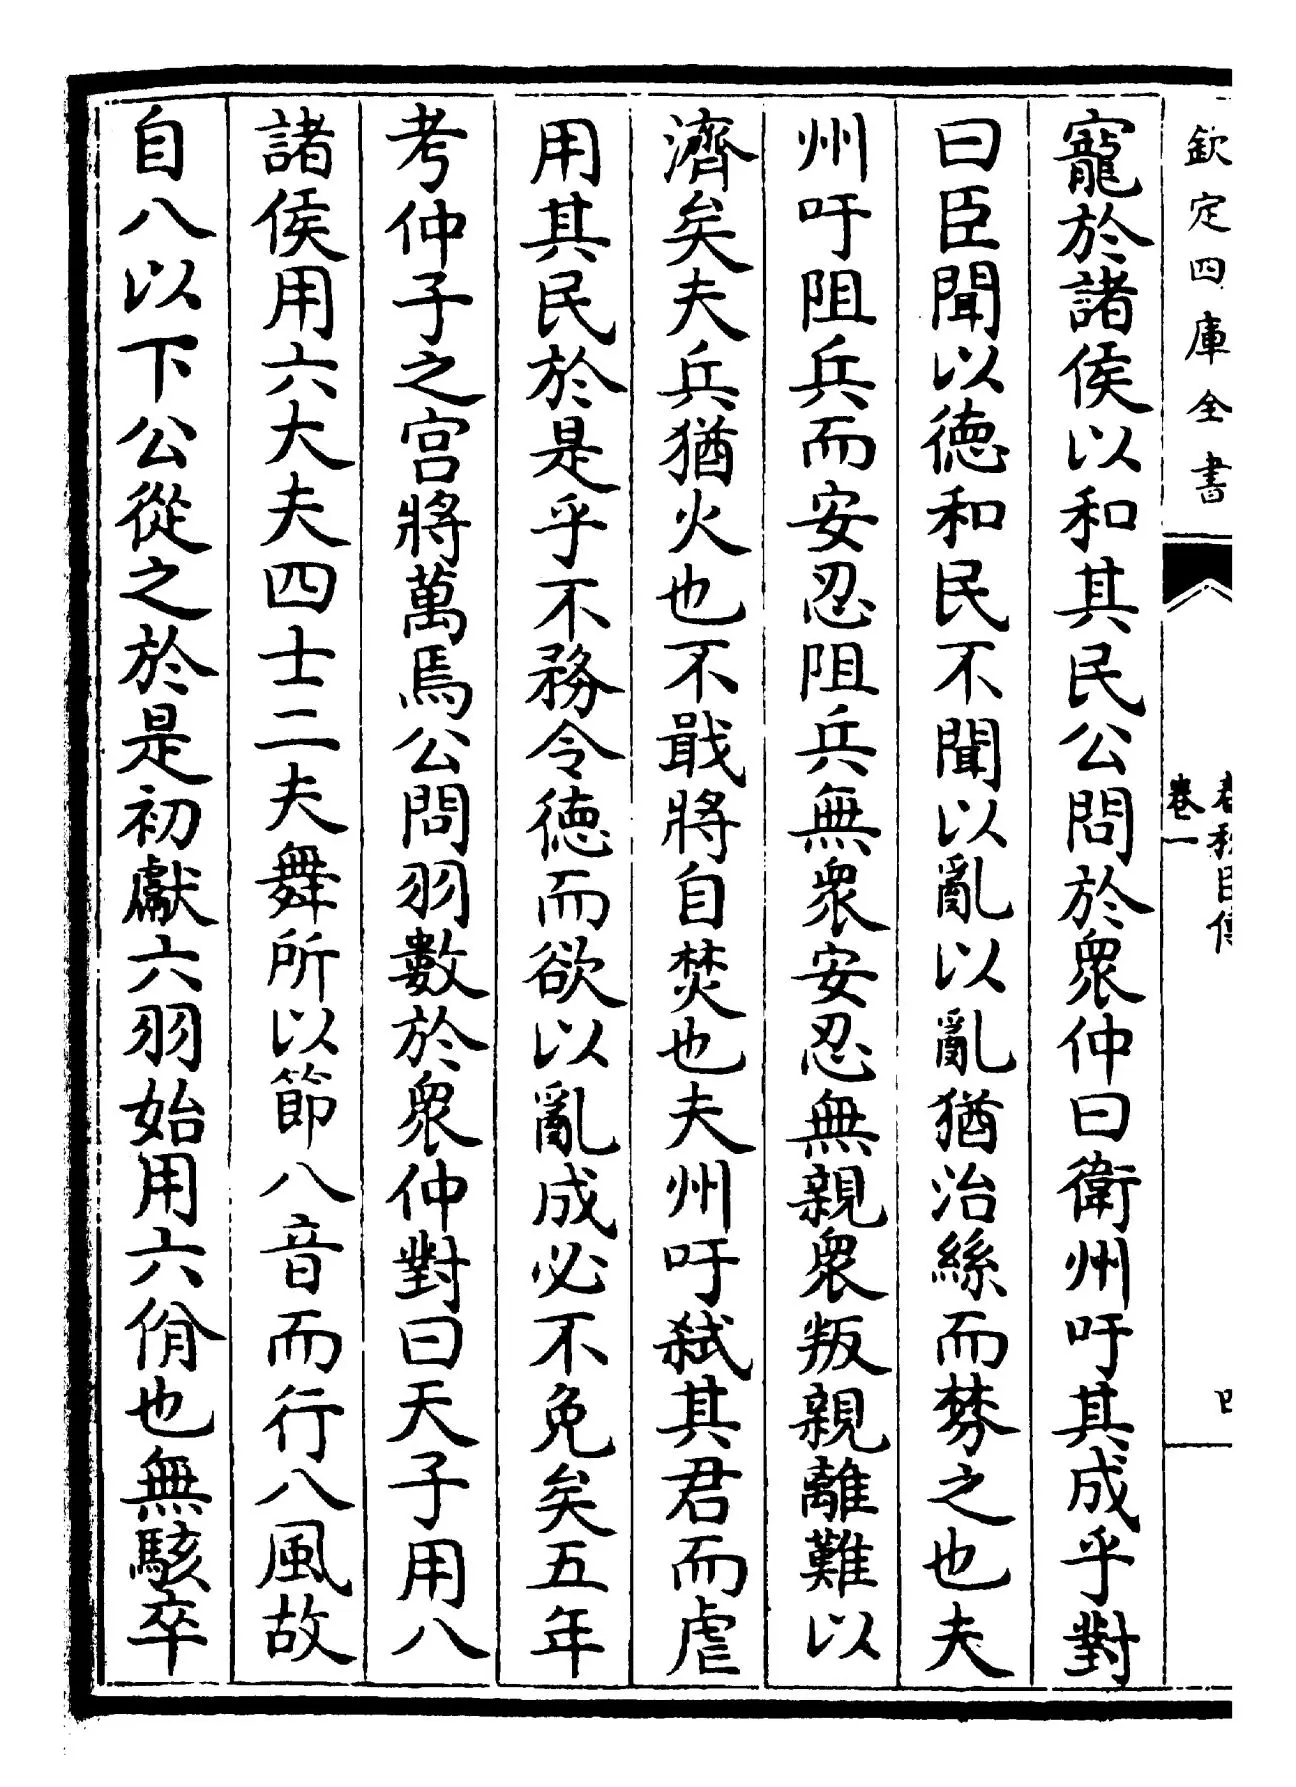 欽定四庫全書
卷一
寵於諸侯以和其民公問於衆仲曰衛州吁其成乎對
曰臣聞以徳和民不聞以亂以亂猶治絲而棼之也夫
州吁阻兵而安忍阻兵無衆安忍無親衆叛親離難以
濟矣夫兵猶火也不戢將自焚也夫州吁弑其君而虐
用其民於是乎不務令徳而欲以亂成必不免矣五年
考仲子之宫將萬焉公問羽數於衆仲對曰天子用八
諸侯用六大夫四士二夫舞所以節八音而行八風故
自八以下公從之於是初獻六羽始用六佾也無駭卒